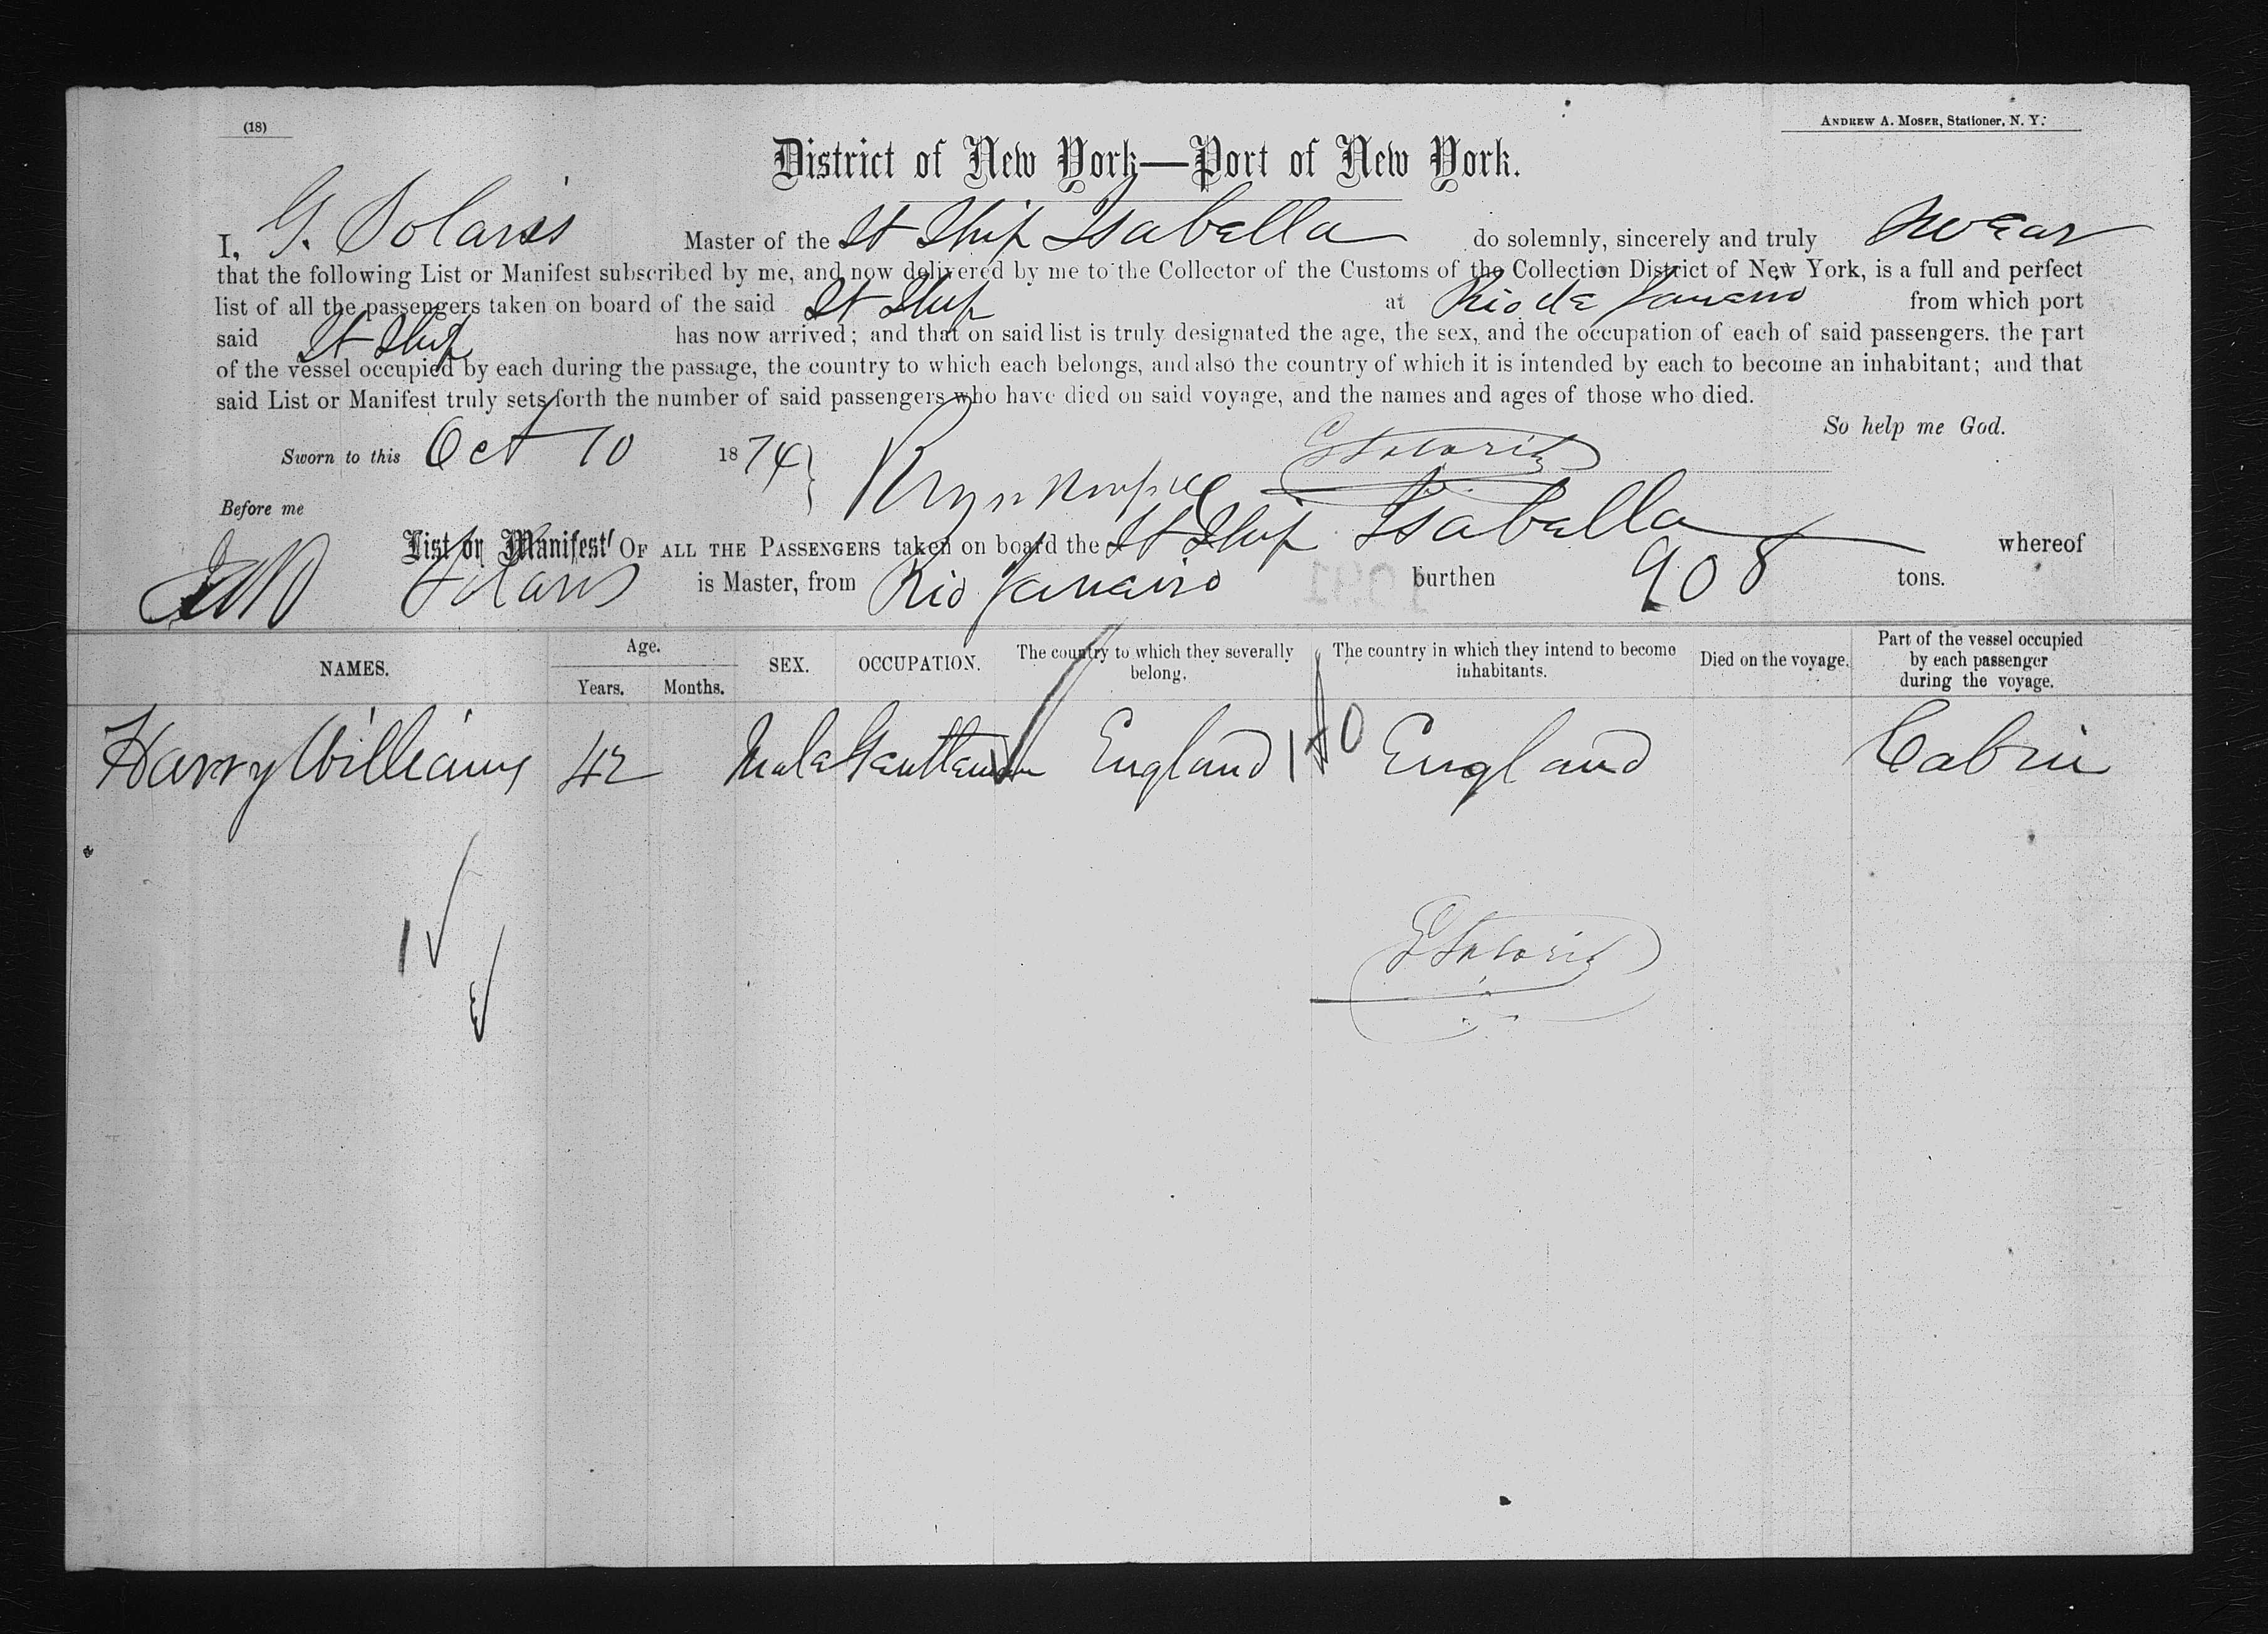 (18)
ANDREW A. MOSER, Stationer, N. Y.
District of New York—Port of New York.
I, G. Solaris Master of the St Ship Isabella do solemnly, sincerely and truly swear
that the following List or Manifest subscribed by me, and now delivered by me to the Collector of the Customs of the Collection District of New York, is a full and perfect
list of all the passengers taken on board of the said St Ship at Rio de Janeiro from which port
said St Ship has now arrived; and that on said list is truly designated the age, the sex, and the occupation of each of said passengers, the part
of the vessel occupied by each during the passage, the country to which each belongs, and also the country of which it is intended by each to become an inhabitant; and that
said List or Manifest truly sets forth the number of said passengers who have died on said voyage, and the names and ages of those who died.
So help me God.
Sworn to this Oct 10 1874
Before me
List or Manifest OF ALL THE PASSENGERS taken on board the St Ship Isabella whereof
Solaris is Master, from Rio Janairo burthen 908 tons.
NAMES. Age. Years. Months. SEX. OCCUPATION. The country to which they severally belong. The country in which they intend to become inhabitants. Died on the voyage. Part of the vessel occupied by each passenger during the voyage.
Harry Williams 42 Male Gentleman England England Cabin
1